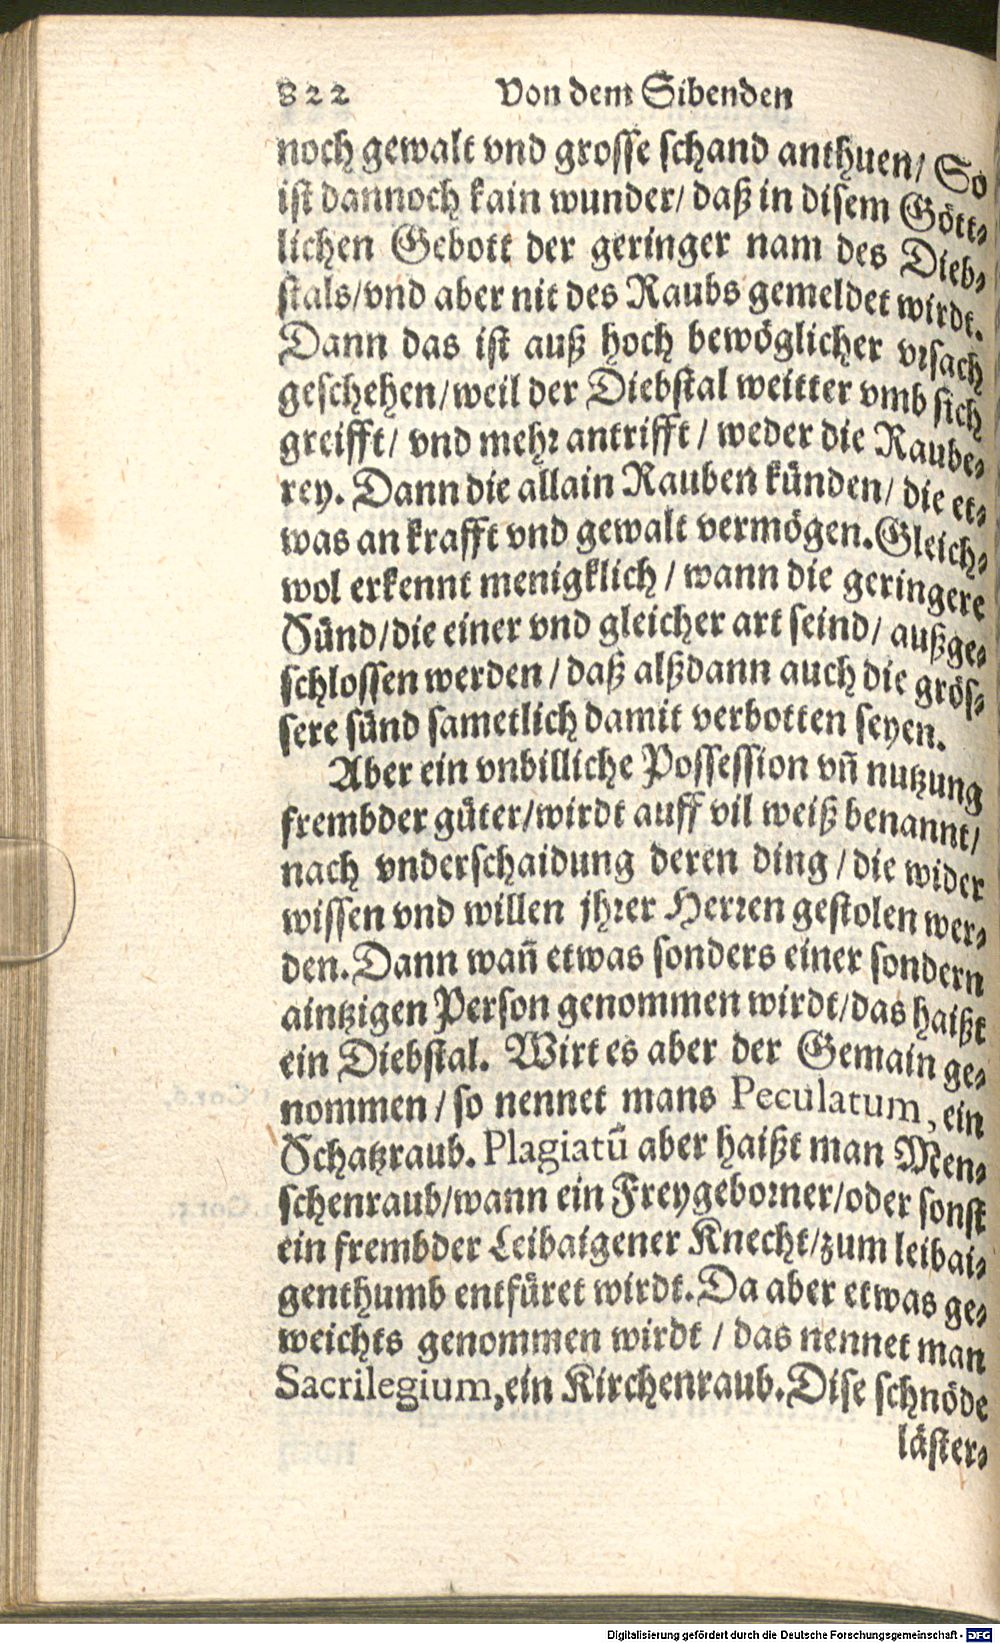 822 Von dem Sibenden
noch gewalt vnd grosse schand anthuen/ So
ist dannoch kain wunder/ daß in disem Gött-
lichen Gebott der geringer nam des Dieb-
stals/vnd aber nit des Raubs gemeldet wirdt.
Dann das ist auß hoch bewöglicher vrsach
geschehen/weil der Diebstal weitter vmb sich
greifft/ vnd mehr antrifft / weder die Raube-
rey. Dann die allain Rauben künden/ die et-
was an krafft vnd gewalt vermögen. Gleich-
wol erkennt menigklich / wann die geringere
Sünd/die einer vnd gleicher art seind/ außge-
schlossen werden / daß alßdann auch die grös-
sere sünd sametlich damit verbotten seyen.
Aber ein vnbilliche Possession vñ nutzung
frembder güter/wirdt auff vil weiß benannt/
nach vnderschaidung deren ding / die wider
wissen vnd willen jhrer Herren gestolen wer-
den. Dann wañ etwas sonders einer sondern
aintzigen Person genommen wirdt/das haißt
ein Diebstal. Wirt es aber der Gemain ge-
nommen / so nennet mans Peculatum, ein
Schatzraub. Plagiatũ aber haißt man Men-
schenraub/wann ein Freygeborner/oder sonst
ein frembder Leibaigener Knecht/zum leibai-
genthumb entfüret wirdt. Da aber etwas ge-
weichts genommen wirdt / das nennet man
Sacrilegium, ein Kirchenraub. Dise schnöde
läster-
Digitalisierung gefördert durch die Deutsche Forschungsgemeinschaft - DFG